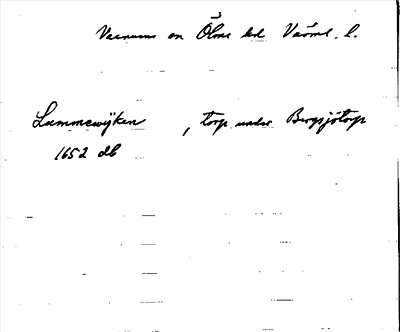 Varnums sn Ölme hd Värml. l.
Lummewijken , torp under Bergsjötorp
1652 db